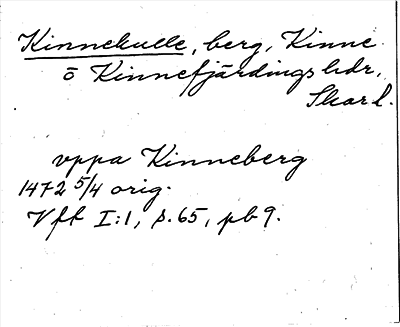 Kinnekulle, berg, Kinne
o Kinnefjärdings hdr,
Skar l.
uppa Kinneberg
1472 5/4 orig.
Vff I:1, s. 65, pb 9.